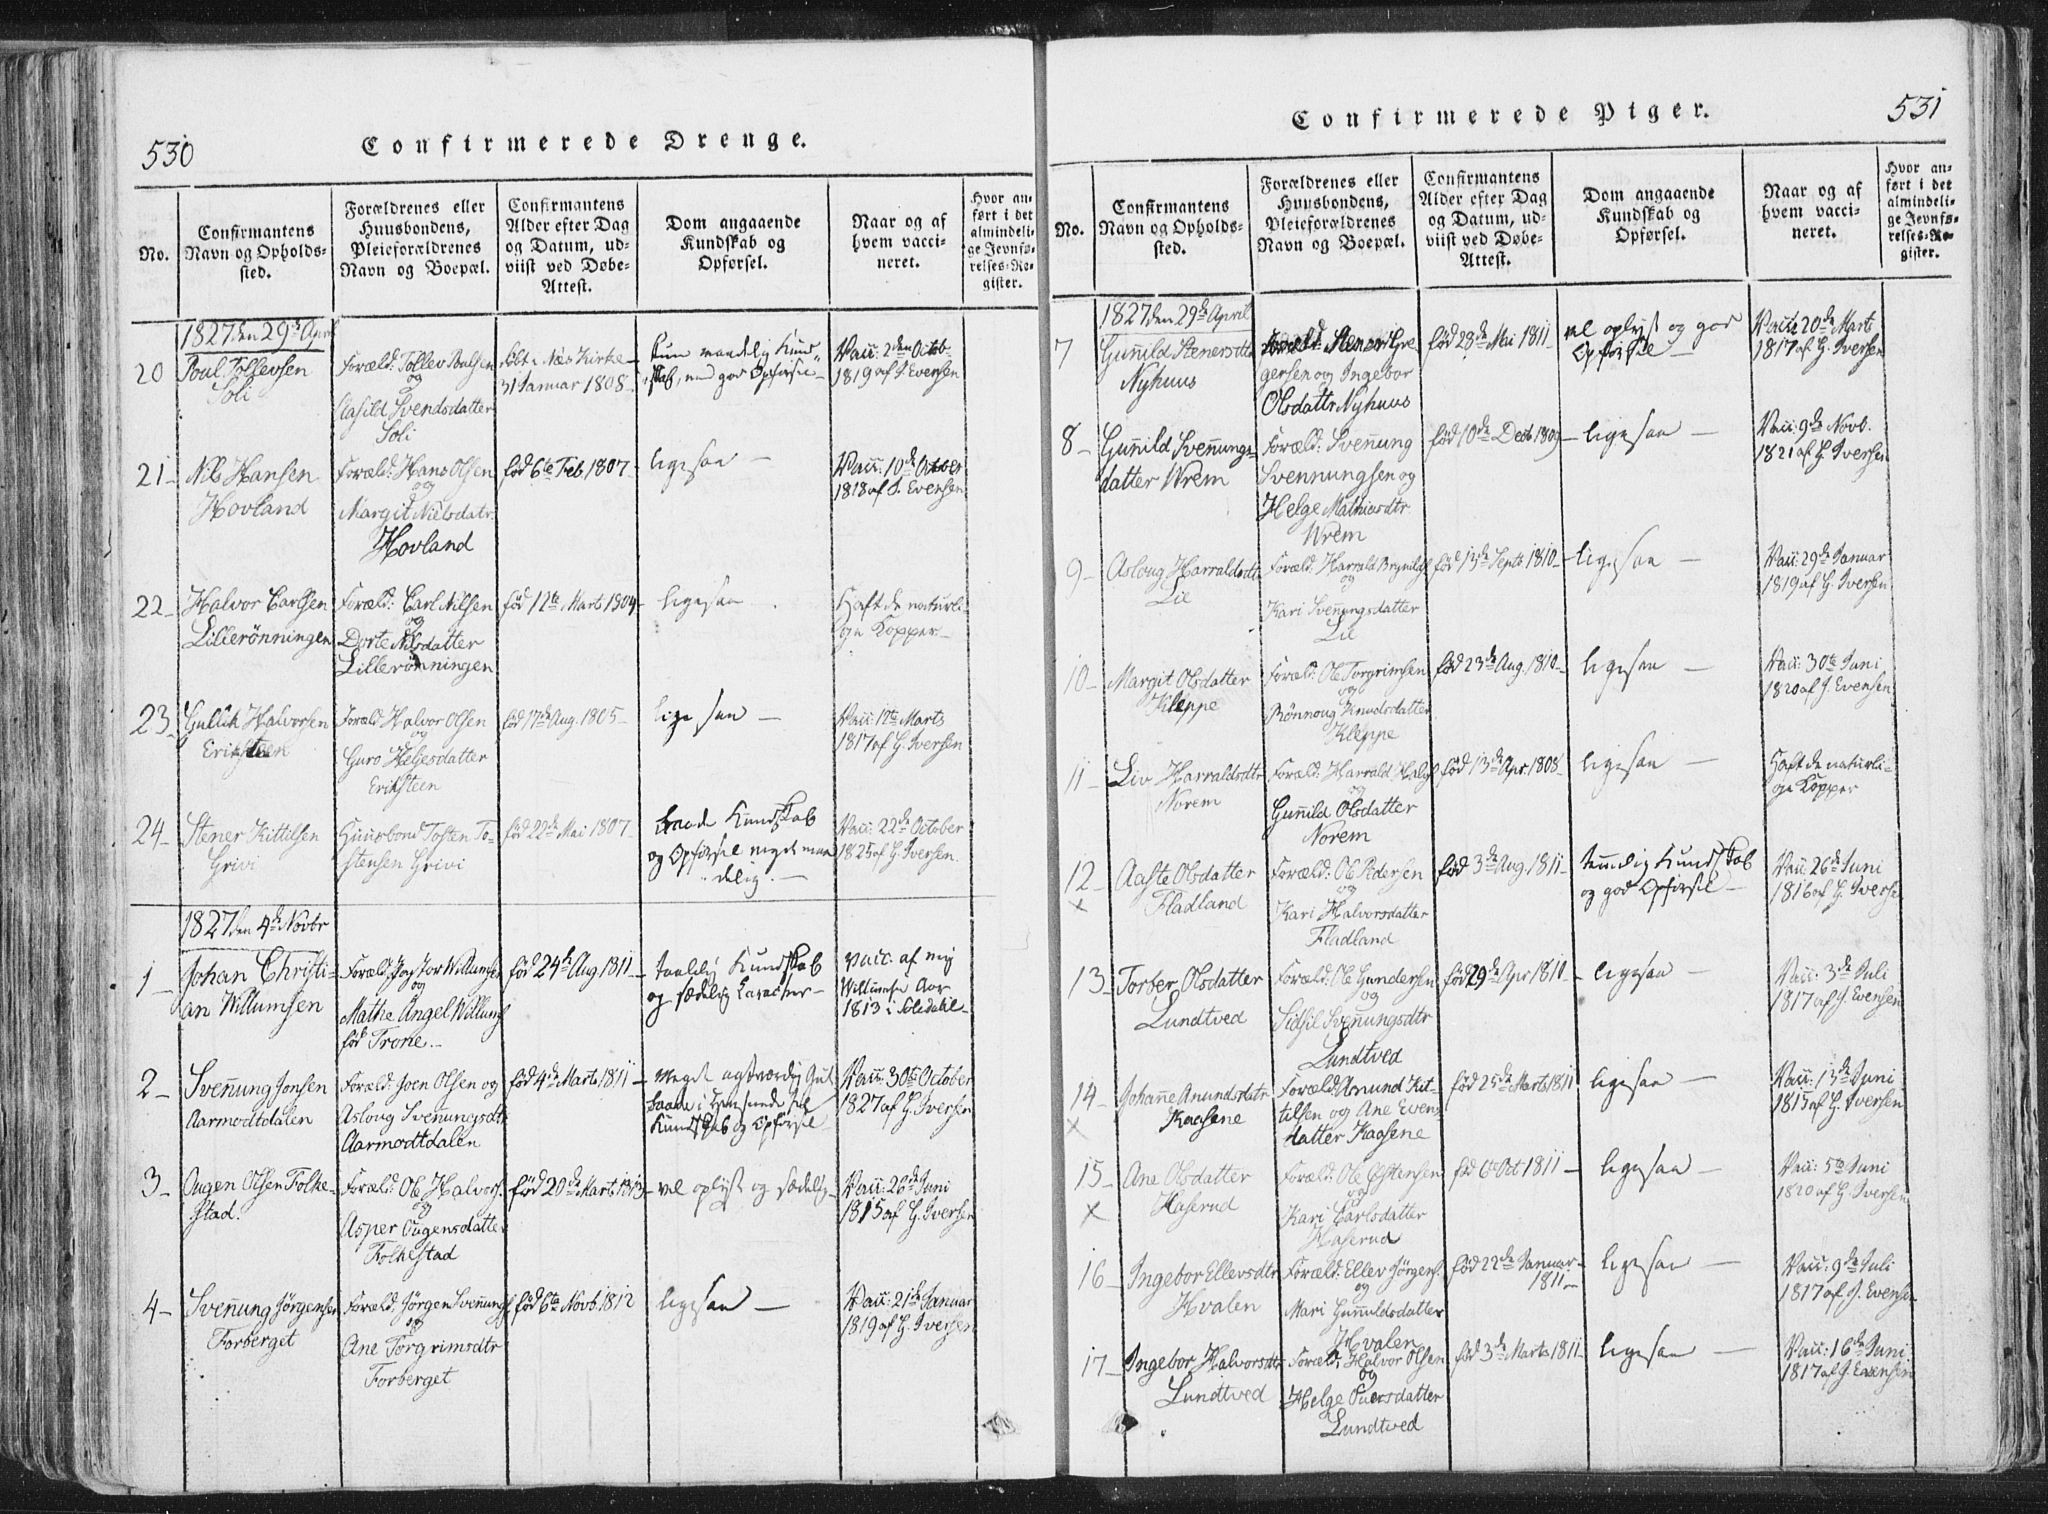 530
Confirmerede Drenge.
No.
Confirmantens Navn og Opholds-sted.
Forældrenes eller Huusbondens, Pleieforældrenes Navn og Boepæl.
Confirmantens Alder efter Dag og Datum, ud-viist ved Døbe-Attest.
Dom angaaende Kundskab og Opførsel.
Naar og af hvem vacci-neret.
Hvor an-ført i det almindeli-ge Jevnfø-relses-Re-gister.
1827 den 29de April
20
Poul Tollevsen
Soli
Foræld: Tollev
og
Aasild Svendsdatter
Soli
døbt i Næs Kirke
31 Januar 1808
kun maadelig Kund-
skab, med god Opførsel
Vacc: 2den Octob.
1819 af J. Evensen
21
Nils Hansen
Hovland
Foræld: Hans Olsen
og
Margit Nielsdatr.
Hovland
født 6te Feb. 1807
ligesaa
Vacc: 10de October
1818 af J. Evensen
22
Halvor Carlsen
Lillerønningen
Foræld: Carl Nilsen
og
Dorte Nilsdatter
Lillerønningen
født 12te Marts 1804
ligesaa
Haft de naturli-
ge Kopper
23
Gullik Halvorsen
Eriksteen
Foræld: Halvor Olsen
og
Guro Helgesdatter
Eriksteen
født 17de Aug. 1805
ligesaa
Vacc: 12te Marts
1817 af G. Iversen
24
Stener Kittilsen
Grivi
Huusbond Tosten To-
stensen Grivi
født 22de Mai 1807
baade Kundskab
og Opførsel meget maa-
delig.
Vacc: 22de October
1825 af G. Iversen
1827 den 4de Novbr
1
Johan Christi-
an Willumsen
Foræld: Pastor Willumsen
og
Mathe Angel Willums
fød Trone.
født 24de Aug 1811
og sædelig Caracter
Vacc. af mig
Aar
1813 i
2
Svennung Jonsen
Aarmodtdalen
Foræld: Joen Olsen og
Asloug Svennungsdtr
Aarmodtdalen
født 4de Marts 1811
Kundskab og Opførsel
Vacc: 30te October
1827 af G. Iversen
3
Ougen Olsen Folke-
stad.
Foræld: Ole Halvors.
og
Asper Ougensdatter
Folkestad
født 20de Marts 1813
vel oplyst og sædelig
Vacc: 26de Juni
1815 af G. Iversen
4
Svennung Jørgensen
Forberget
Foræld: Jørgen Svennungs
og
Ane Torgrimsdtr
Forberget
født 6te Novb. 1812
ligesaa
Vacc: 21de Januar
1819 af G. Iversen
531
Confirmerede Piger.
No.
Confirmantens Navn og Opholds-sted.
Forældrenes eller Huusbondens, Pleieforældrenes Navn og Boepæl.
Confirmantens Alder efter Dag og Datum, ud-viist ved Døbe-Attest.
Dom angaaende Kundskab og Opførsel.
Naar og af hvem vacci-neret.
Hvor an-ført i det almindeli-ge Jevnfø-relses-Re-gister.
1827 den 29de April
7
Gunild Stenersdtr
Nyhuus
Foræld: Stener Gre-
gersen og Ingebor
Olsdattr Nyhuus
født 28de Mai 1811
vel oplyst og god
Opførsel
Vacc: 20de Marts
1817 af G. Iversen
8
Gunild Svennungs-
datter Wrem
Foræld: Svennung
Svennungsen og
Helge Mathiasdtr
Wrem
født 10de Decb. 1809
ligesaa
Vacc: 9de Novb.
1821 af G. Iversen
9
Asloug Harraldsdtr
Lie
Foræld: Harrald Brynilds
og
Kari Svenungsdatter
Lie
født 13de Septb 1810
ligesaa
Vacc: 29de Januar
1819 af G. Iversen
10
Margit Olsdatter
Kleppe
Foræld: Ole Torgrimsen
og
Rønnoug Knudsdatter
Kleppe
født 23de Aug. 1810
ligesaa
Vacc: 30te Juni
1820 af J. Evensen
11
Liv Harraldsdtr
Norem
Foræld: Harrald Halvs
og
Gunild Olsdatter
Norem
født 13de Apr. 1808
ligesaa
Haft de naturli-
ge Kopper
12
x
Aaste Olsdatter
Fladland
Foræld: Ole Pedersen
og
Kari Halvorsdatter
Fladland
født 3de Aug. 1811
temmelig Kundskab
og god Opførsel
Vacc: 26de Juni
1816 af G. Iversen
13
Torber Olsdatter
Lundtved
Foræld: Ole Gundersen
og
Sidsil Svenungsdtr
Lundtved
født 29de Apr 1810
ligesaa
Vacc: 3de Juli
1817 af J. Evensen
14
x
Johanne Anundsdatr
Kaasene
Foræld: Anund Kit-
tilsen og Ane Evens
datter Kaasene
født 25de Marts 1811
ligesaa
Vacc: 13de Juni
1815 af G. Iversen
15
x
Ane Olsdatter
Haserud
Foræld: Ole Østensen
og
Kari Carlsdatter
Haserud
født 6te Oct 1811
ligesaa
Vacc: 5te Juni
1820 af G. Iversen
16
Ingebor Ellevsdtr
Hvalen
Foræld: Ellev Jørgens.
og
Mari Gunnuldsdatter
Hvalen
født 22de Januar
1811
ligesaa
Vacc: 9de Juli
1817 af J. Evensen
17
Ingebor Halvorsdtr
Lundtved
Foræld: Halvor Olsen
og
Helge Peersdatter
Lundtved
født 3de Marts 1811
ligesaa
Vacc: 16de Juni
1817 af J. Evensen